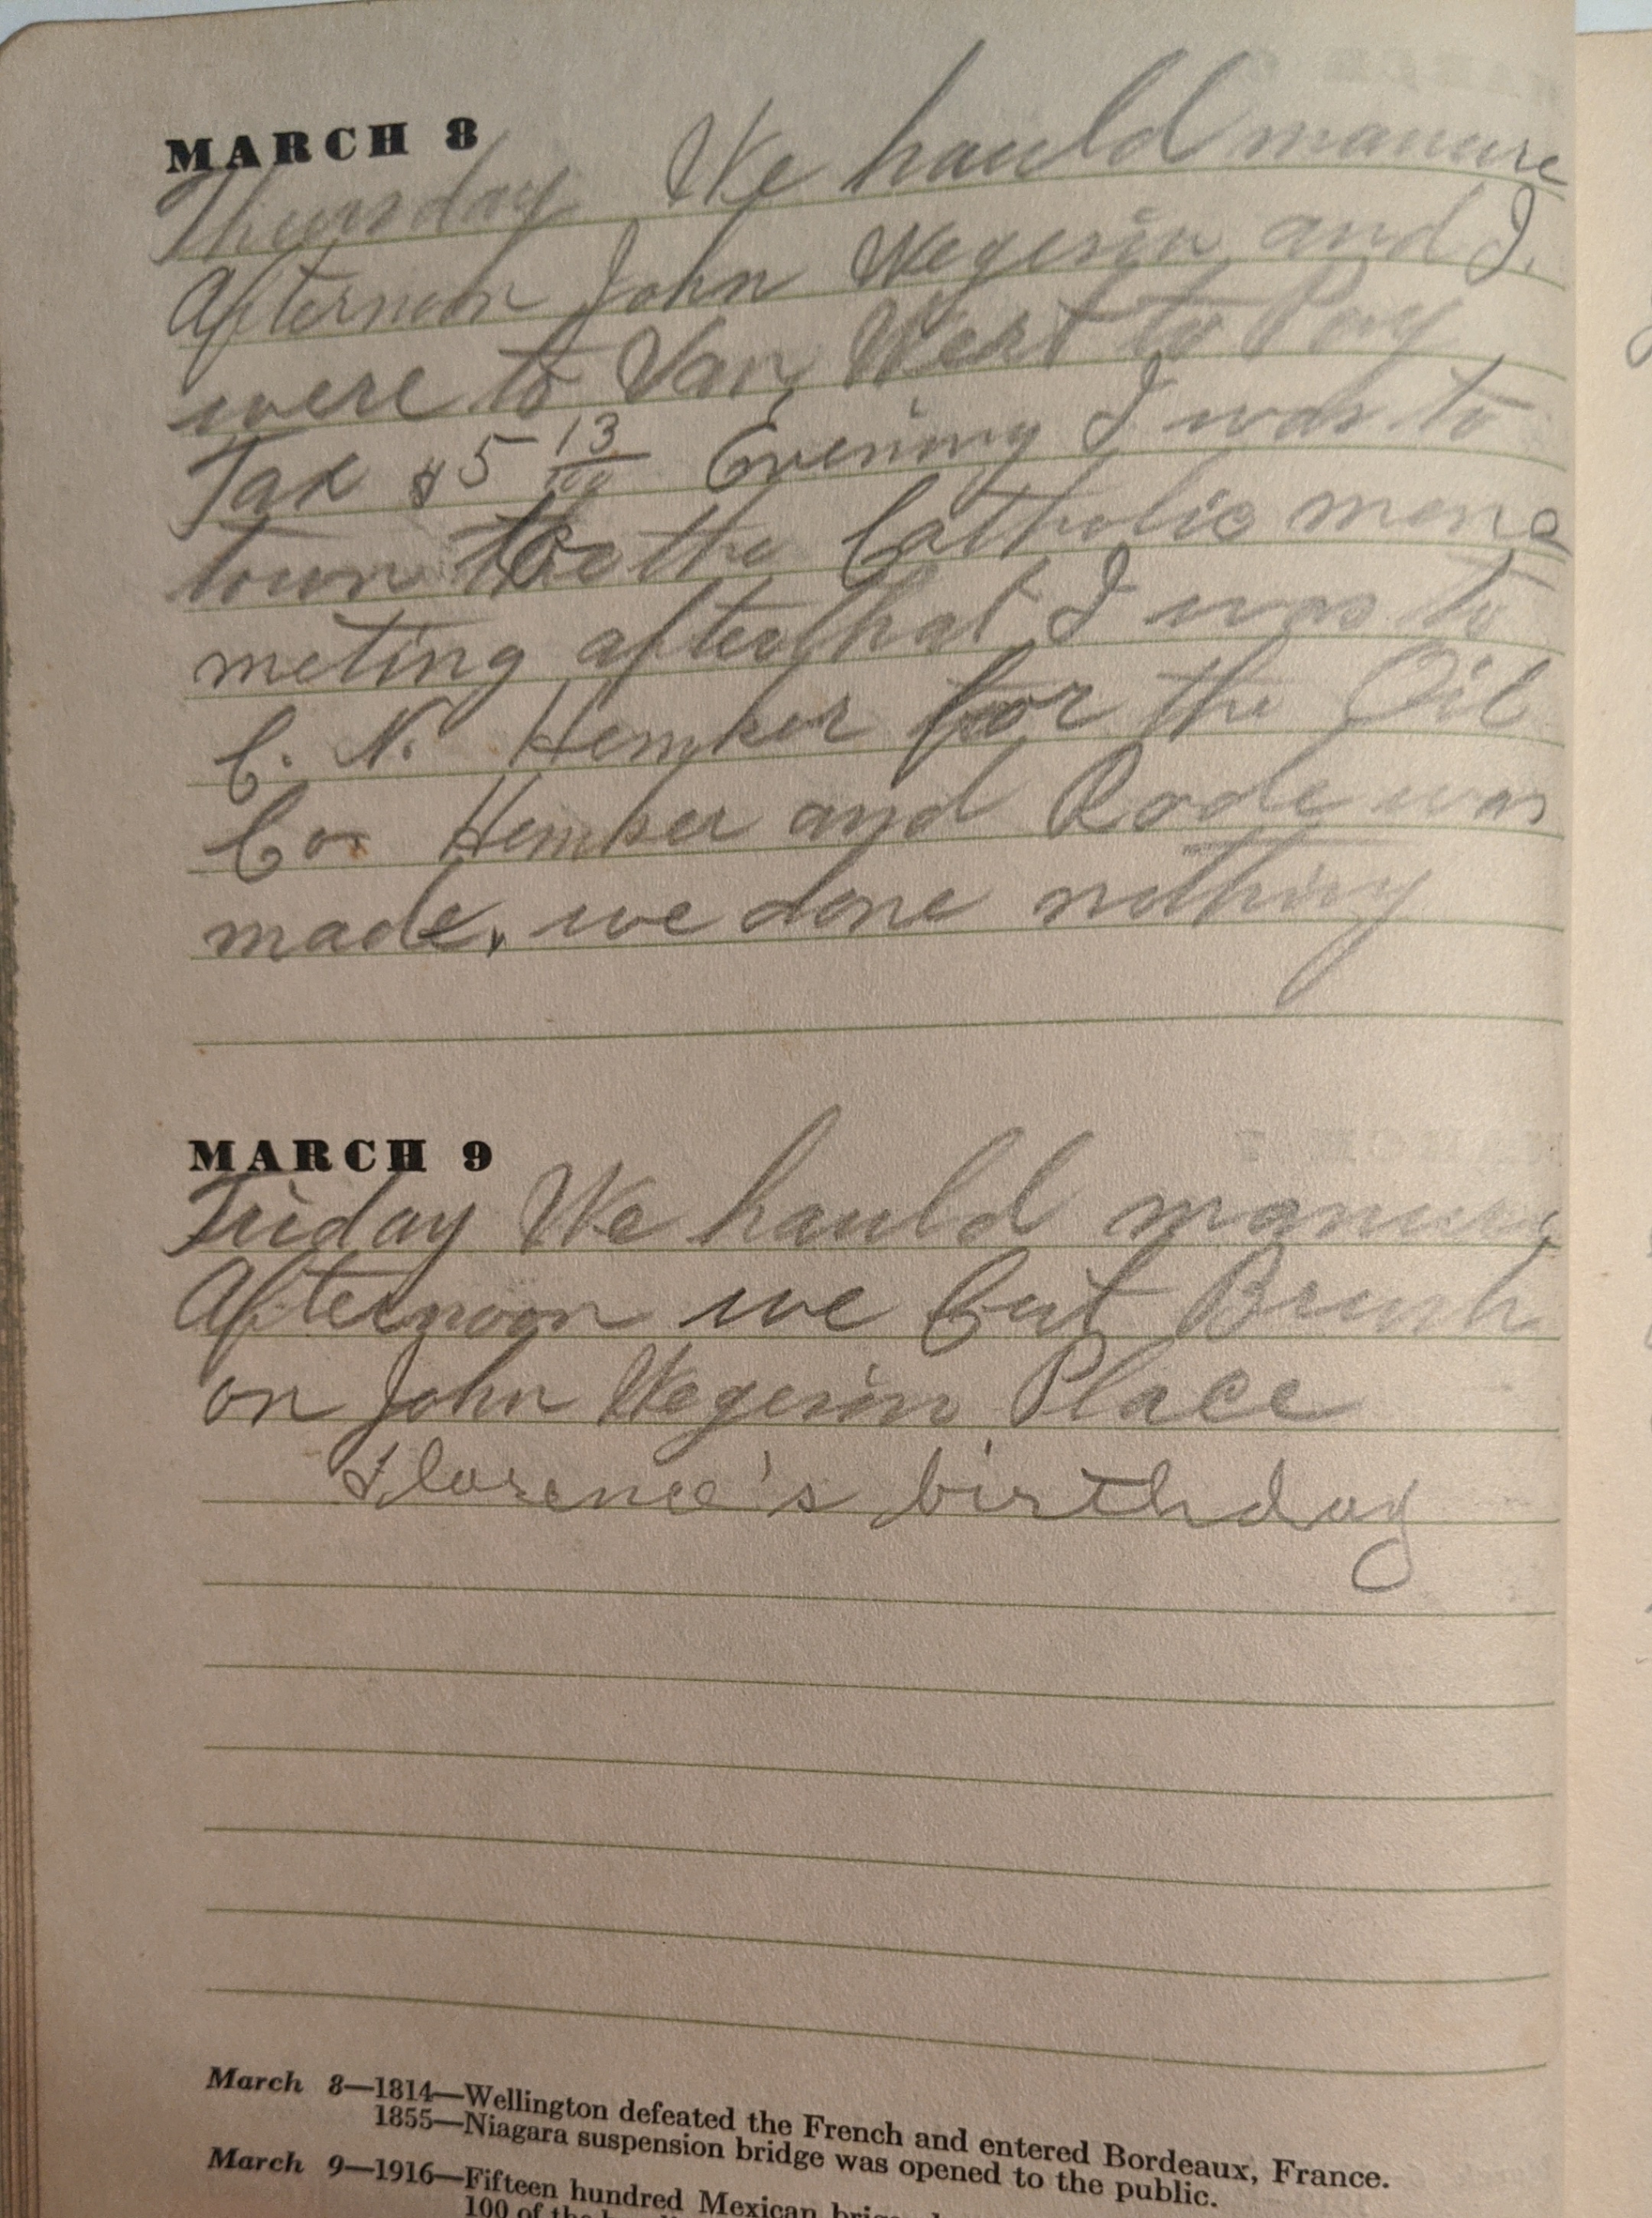 MARCH 8
Thursday We hauld manure
Afternoon John Wegesin and I.
were to Van, Wert to Pay
Tax $5 13/100 Evening I was to
town to the Catholic mens
meting after that I was to
C. N. Hemker for the Oil
Co. Hemker and Rode was
made, we done nothing
MARCH 9
Friday We hauld manure
Afternoon we Cut Brush
on John Wegesin Place
Florence's birthday
March 8—1814—Wellington defeated the French and entered Bordeaux, France.
1855—Niagara suspension bridge was opened to the public.
March 9—1916—Fifteen hundred Mexican
100 of the